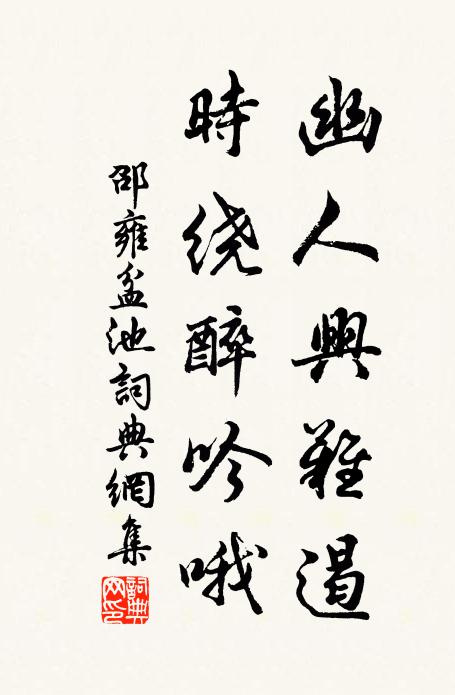 幽人興難遏
時绕醉吟哦
邵雍盆池詞典網集
詞典网印